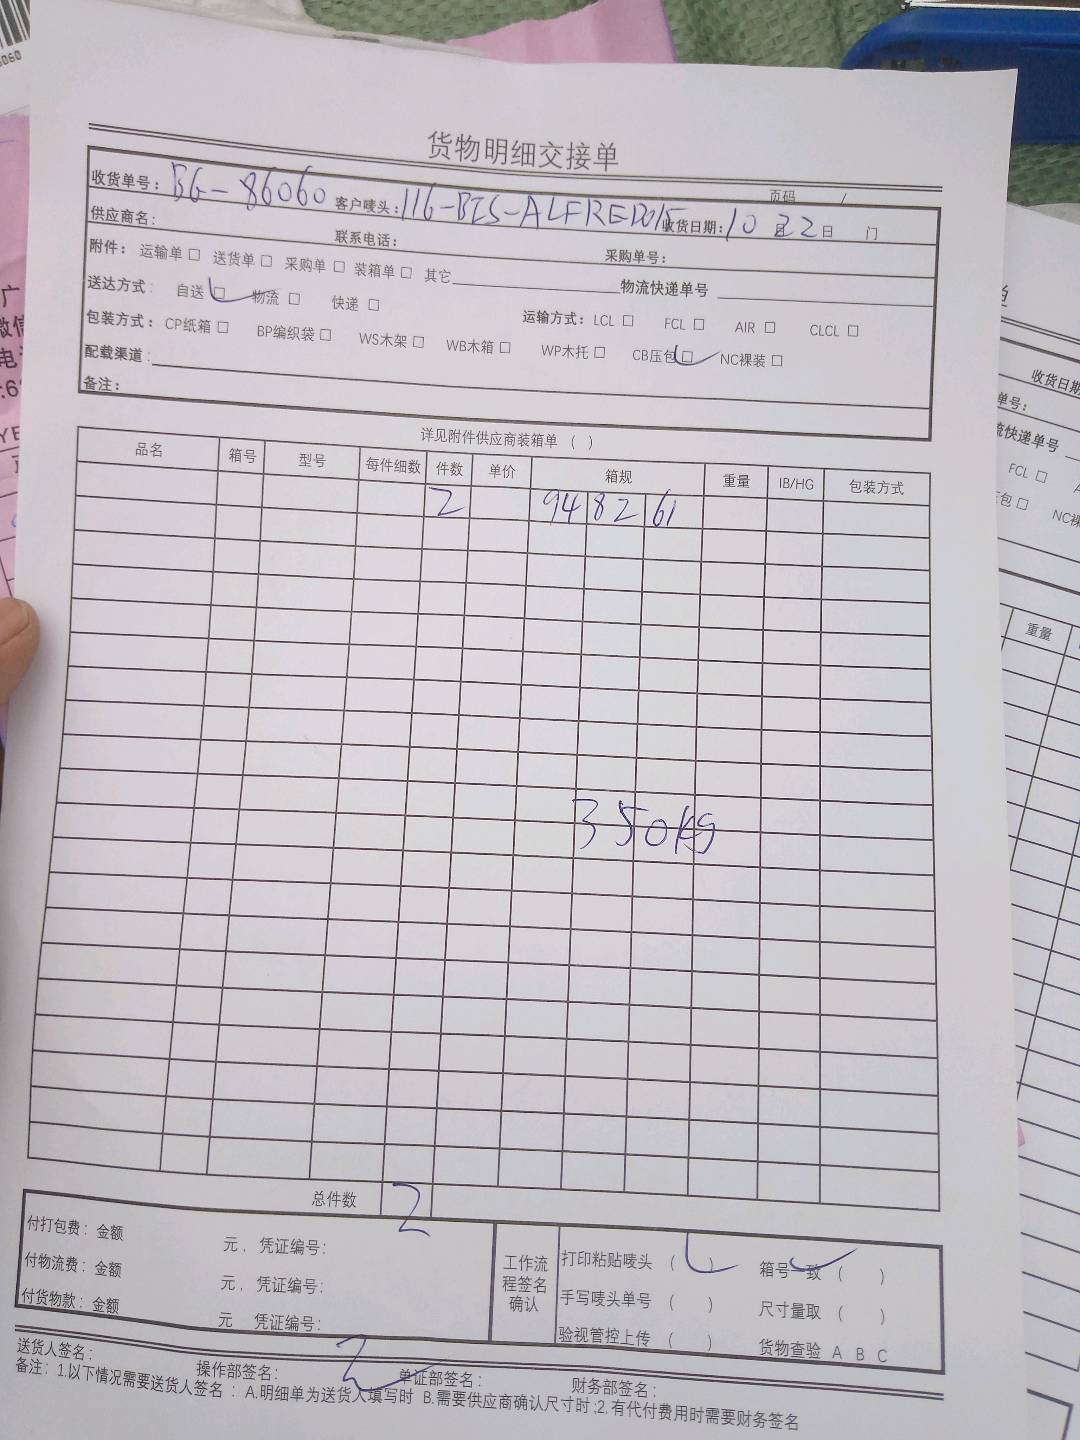 货物明细交接单
页码 /
收货单号：BG-86060 客户唛头：116-BTS-ALFREDO15 收货日期：10 月 22 日 门
供应商名： 联系电话： 采购单号：
附件： 运输单 □ 送货单 □ 采购单 □ 装箱单 □ 其它 物流快递单号
送达方式： 自送 □ 物流 □ 快递 □ 运输方式：LCL □ FCL □ AIR □ CLCL □
包装方式：CP纸箱 □ BP编织袋 □ WS木架 □ WB木箱 □ WP木托 □ CB压包 □ NC裸装 □
配载渠道：
备注：
详见附件供应商装箱单 （ ）
品名 箱号 型号 每件细数 件数 单价 箱规 重量 IB/HG 包装方式
2 94 82 61
350KG
总件数 2
付打包费：金额 元． 凭证编号：
付物流费：金额 元． 凭证编号：
付货物款：金额 元 凭证编号：
工作流程签名确认
打印粘贴唛头 （ ） 箱号一致 （ ）
手写唛头单号 （ ） 尺寸量取 （ ）
验视管控上传 （ ） 货物查验 A B C
送货人签名： 操作部签名： 单证部签名： 财务部签名：
备注：1.以下情况需要送货人签名 ：A.明细单为送货人填写时 B.需要供应商确认尺寸时 ;2.有代付费用时需要财务签名
收货日期
单号：
流快递单号
FCL □
压包 □ NC裸
重量
6060